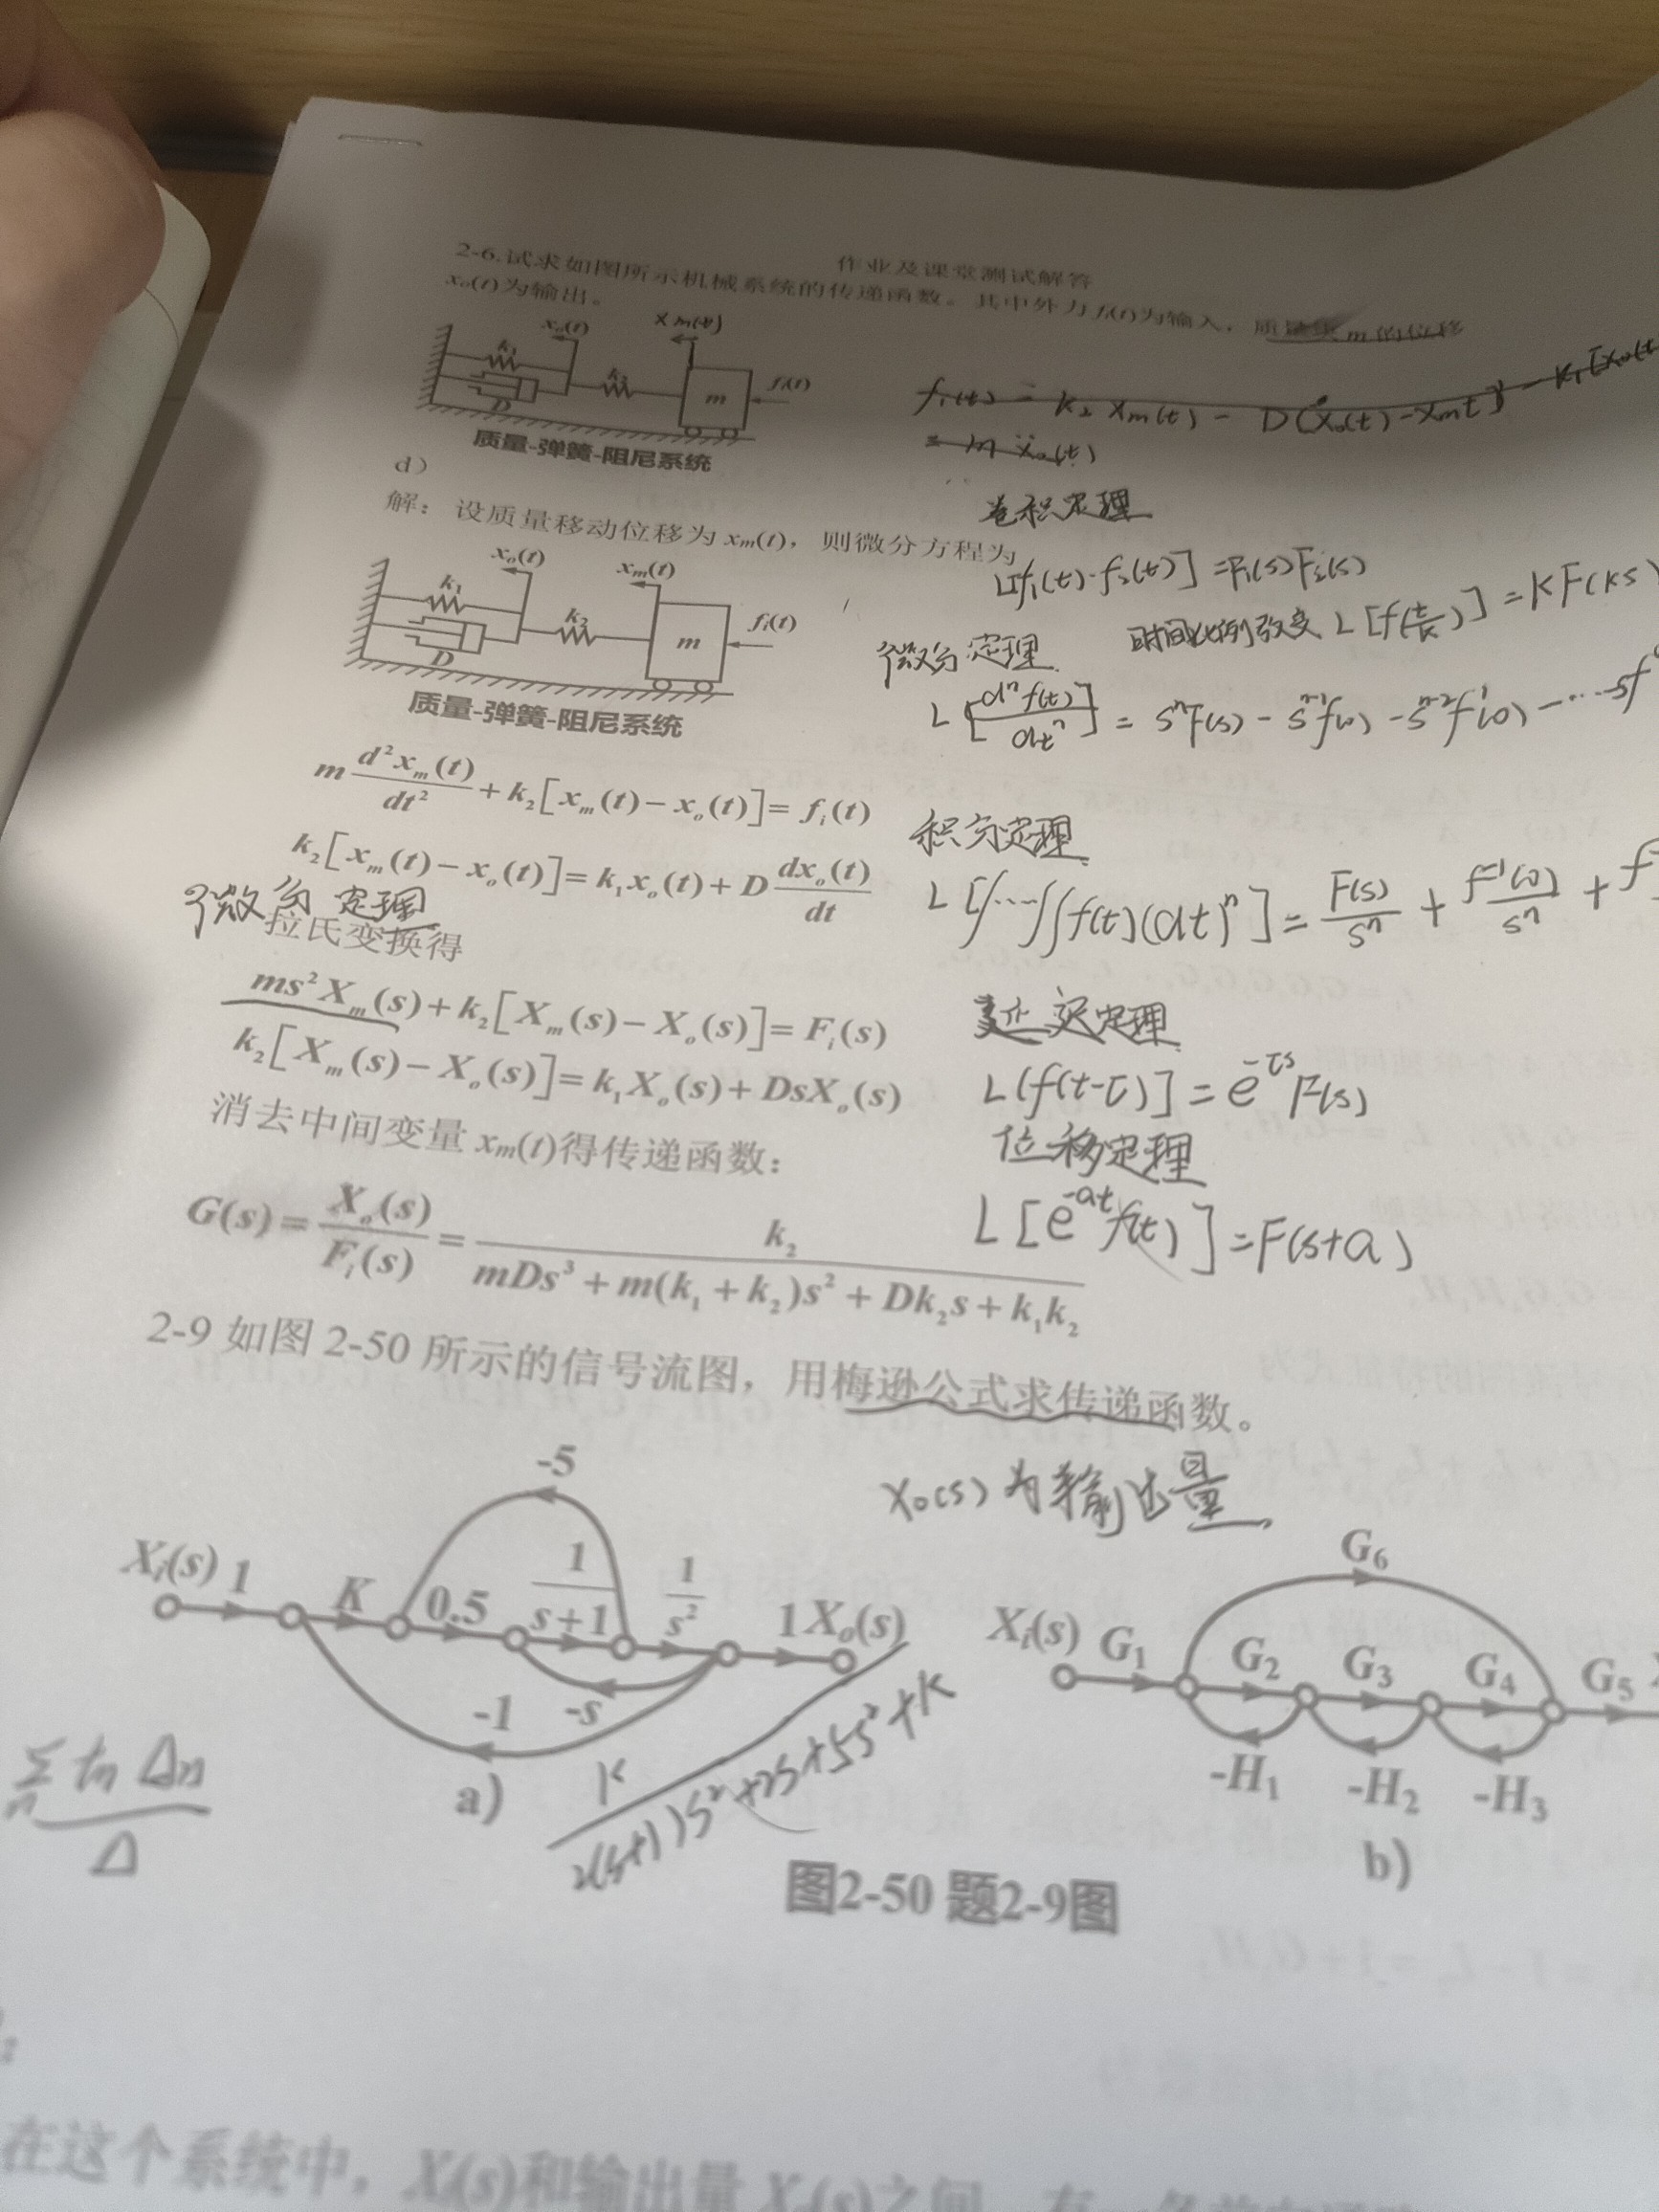 作业及课堂测试解答
2-6.试求如图所示机械系统的传递函数。其中外力 fᵢ(t)为输入，质量块 m 的位移
xₒ(t)为输出。
xₒ(t) xm(t)
k₁ k₂ D m fᵢ(t)
质量-弹簧-阻尼系统
d）
卷积定理
解：设质量移动位移为 xₘ(t)，则微分方程为
L[f₁(t)·f₂(t)] = F₁(s)F₂(s)
xₒ(t) xₘ(t)
k₁ k₂ D m fᵢ(t)
质量-弹簧-阻尼系统
时间比例改变 L[f(t/k)] = KF(ks)
微分定理
L[dⁿf(t)/dtⁿ] = sⁿF(s) - sⁿ⁻¹f(0) - sⁿ⁻²f'(0) - ····
m d²xₘ(t)/dt² + k₂[xₘ(t) − xₒ(t)] = fᵢ(t)
k₂[xₘ(t) − xₒ(t)] = k₁xₒ(t) + D dxₒ(t)/dt
积分定理
L[∫···∫∫f(t)(dt)ⁿ] = F(s)/sⁿ + f⁻¹(0)/sⁿ +
微分定理
拉氏变换得
ms²Xₘ(s) + k₂[Xₘ(s) − Xₒ(s)] = Fᵢ(s)
k₂[Xₘ(s) − Xₒ(s)] = k₁Xₒ(s) + DsXₒ(s)
定理
L(f(t-τ)] = e^-τs F(s)
消去中间变量 xₘ(t)得传递函数：
位移定理
L[e^-at f(t)] = F(s+a)
G(s) = Xₒ(s)/Fᵢ(s) = k₂/(mDs³ + m(k₁ + k₂)s² + Dk₂s + k₁k₂)
2-9 如图 2-50 所示的信号流图，用梅逊公式求传递函数。
X₀(s) 为输出量
-5
Xᵢ(s) 1 K 0.5 1/(s+1) 1/s² 1 Xₒ(s)
-1 -s
a)
K
2(s+1))s²+2s+5s²+K
Σ tn Δn
n
Δ
G₆
Xᵢ(s) G₁ G₂ G₃ G₄ G₅
-H₁ -H₂ -H₃
b)
图2-50 题2-9图
在这个系统中，Xᵢ(s)和输出量 Xₒ(s)之间